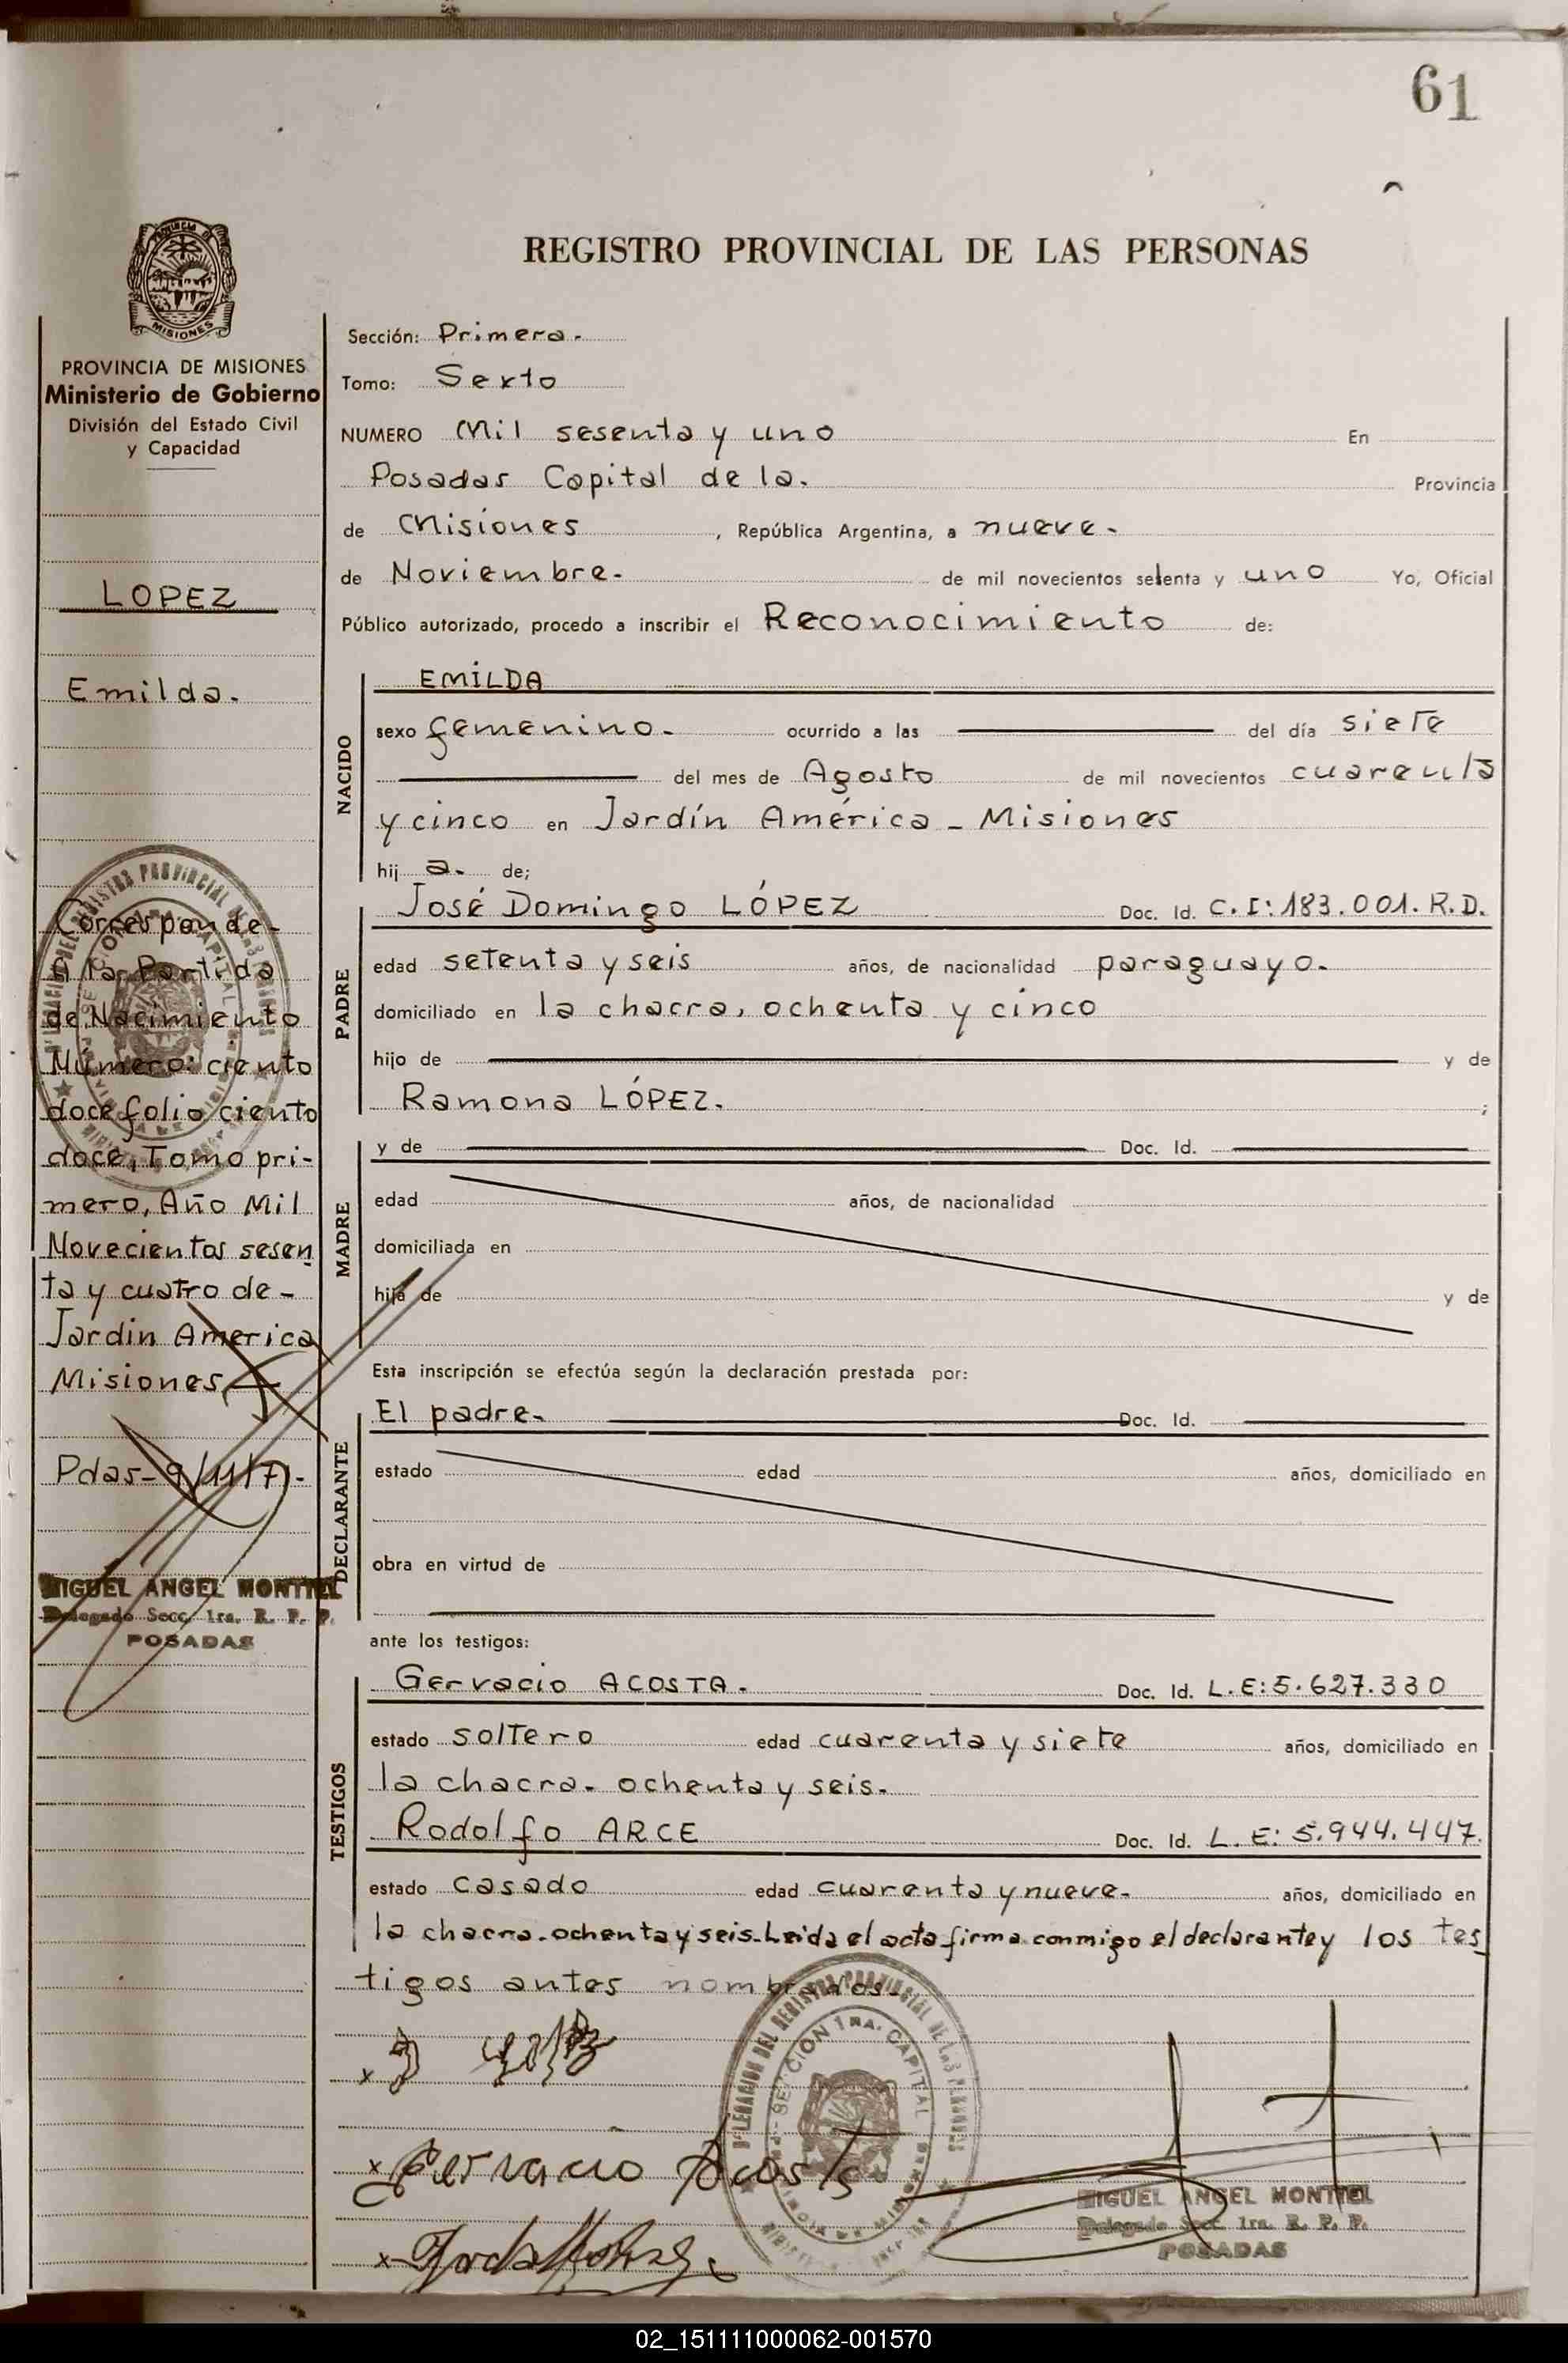 61
REGISTRO PROVINCIAL DE LAS PERSONAS
MISIONES
PROVINCIA DE MISIONES
Ministerio de Gobierno
División del Estado Civil
y Capacidad
LOPEZ
Emilda.
Corresponde-
a la Partida
de Nacimiento
Número: ciento
doce folio ciento
doce, Tomo pri-
mero, Año Mil
Novecientos sesen
ta y cuatro de-
Jardin America
Misiones
Pdas-9/11/71-
MIGUEL ANGEL MONTIEL
Delegado Secc. 1ra. R. P. P.
POSADAS
Sección: Primera.
Tomo: Sexto
NUMERO Mil sesenta y uno En
Posadas Capital de la. Provincia
de Misiones, República Argentina, a nueve.
de Noviembre. de mil novecientos setenta y uno Yo, Oficial
Público autorizado, procedo a inscribir el Reconocimiento de:
NACIDO
EMILDA
sexo femenino. ocurrido a las del día siete
del mes de Agosto de mil novecientos cuarenta
y cinco en Jardín América - Misiones
hij a. de;
PADRE
José Domingo LÓPEZ Doc. Id. C.I: 183.001. R.D.
edad setenta y seis años, de nacionalidad paraguayo.
domiciliado en la chacra, ochenta y cinco
hijo de y de
Ramona LÓPEZ. ;
MADRE
y de Doc. Id.
edad años, de nacionalidad
domiciliada en
hija de y de
Esta inscripción se efectúa según la declaración prestada por:
DECLARANTE
El padre. Doc. Id.
estado edad años, domiciliado en
obra en virtud de
ante los testigos:
TESTIGOS
Gervacio ACOSTA. Doc. Id. L.E: 5.627.330
estado soltero edad cuarenta y siete años, domiciliado en
la chacra. ochenta y seis.
Rodolfo ARCE Doc. Id. L.E: 5.944.447.
estado casado edad cuarenta y nueve. años, domiciliado en
la chacra. ochenta y seis. Leida el acta firma conmigo el declarante y los tes
tigos antes nombrados.
x
x Gervacio Acosta
x
SECCION 1RA. CAPITAL
MIGUEL ANGEL MONTIEL
Delegado Secc. 1ra. R. P. P.
POSADAS
02_151111000062-001570